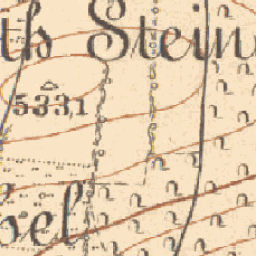 th Stein
5331
bel